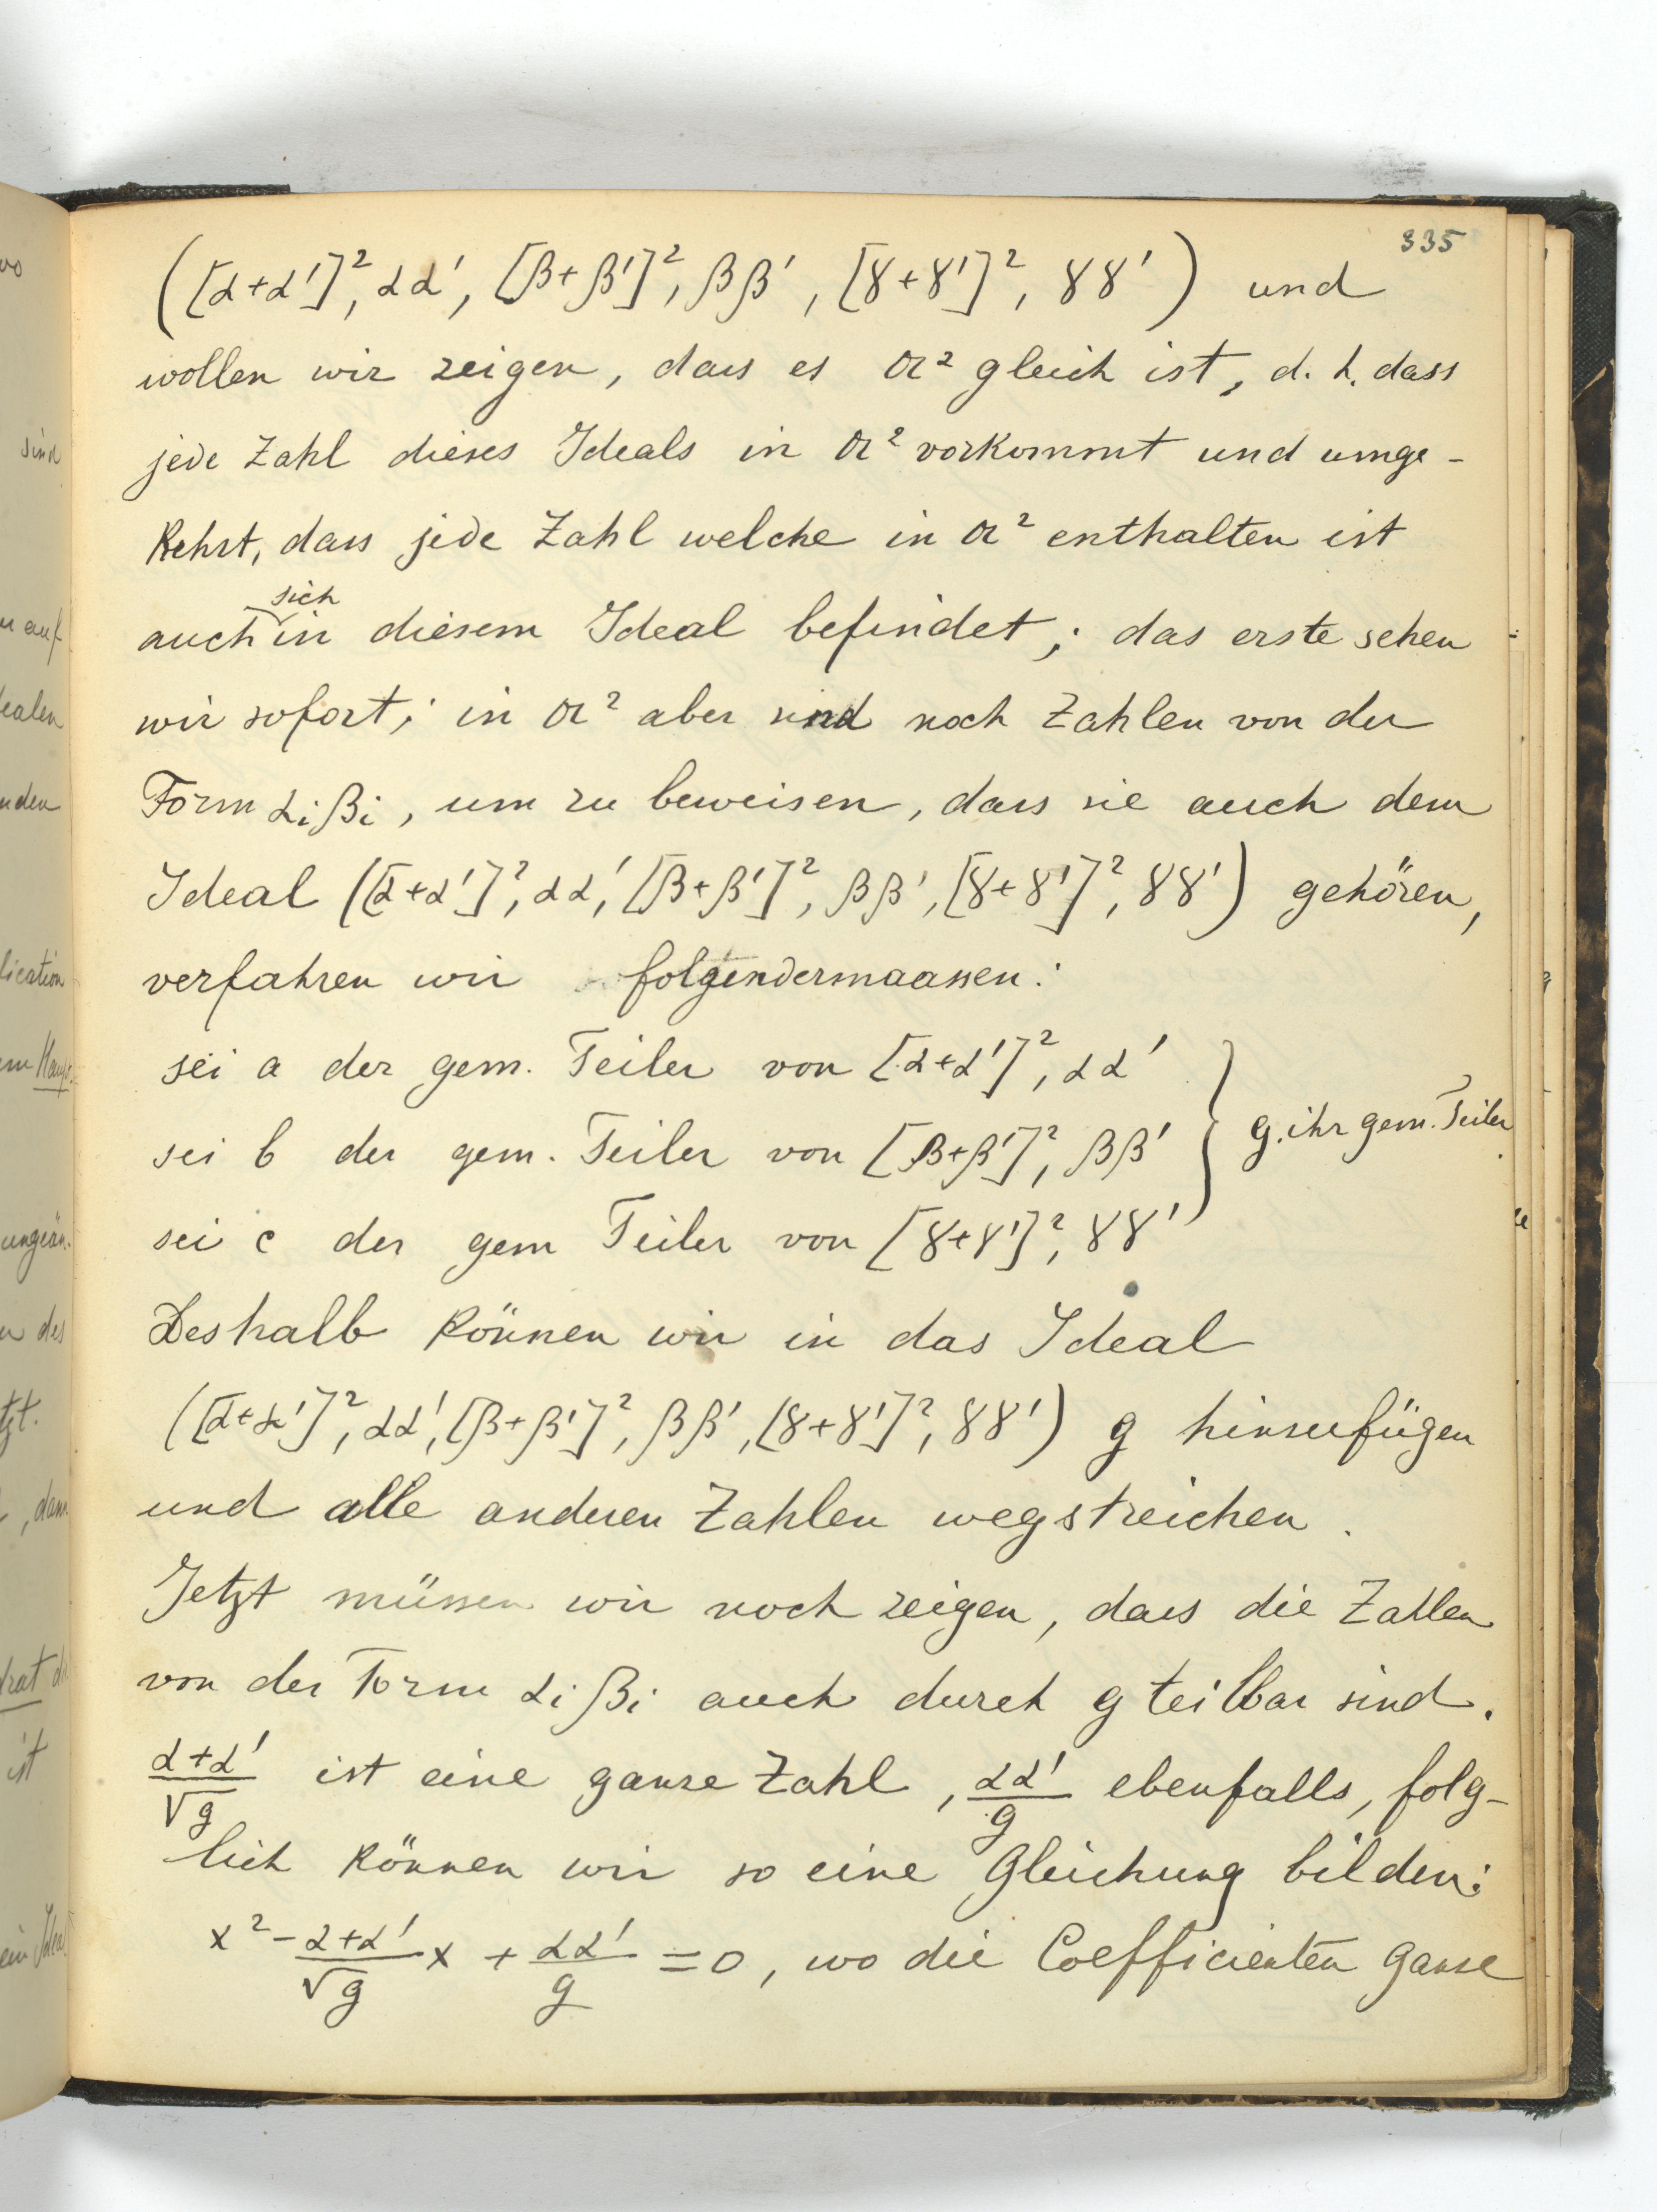 335
([α+α']², αα', [β+β']², ββ', [γ+γ']², γγ') und
wollen wir zeigen, dass es 𝔞² gleich ist, d. h. dass
jede Zahl dieses Ideals in 𝔞² vorkommt und umge-
kehrt, dass jede Zahl welche in 𝔞² enthalten ist
auch sich in diesem Ideal befindet; das erste sehen
wir sofort; in 𝔞² aber sind noch Zahlen von der
Form αᵢβᵢ, um zu beweisen, dass sie auch dem
Ideal ([α+α']², αα', [β+β']², ββ', [γ+γ']², γγ') gehören,
verfahren wir folgendermaassen:
sei a der gem. Teiler von [α+α']², αα'
sei b der gem. Teiler von [β+β']², ββ' } g. ihr gem. Teiler.
sei c der gem Teiler von [γ+γ']², γγ'
Deshalb können wir in das Ideal
([α+α']², αα', [β+β']², ββ', [γ+γ']², γγ') g hinzufügen
und alle anderen Zahlen wegstreichen.
Jetzt müssen wir noch zeigen, dass die Zahlen
von der Form αᵢβᵢ auch durch g teilbar sind.
(α+α')/√g ist eine ganze Zahl, αα'/g ebenfalls, folg-
lich können wir so eine Gleichung bilden:
x² - (α+α')/√g x + αα'/g = 0, wo die Coefficienten ganze